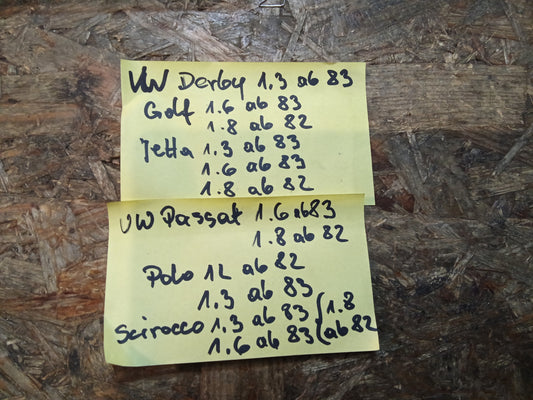 VW Derby 1.3 ab 83
Golf 1.6 ab 83
1.8 ab 82
Jetta 1.3 ab 83
1.6 ab 83
1.8 ab 82
VW Passat 1.6 ab 83
1.8 ab 82
Polo 12 ab 82
1.3 ab 83
Scirocco 1.3 ab 83 { 1.8
1.6 ab 83 ab 82